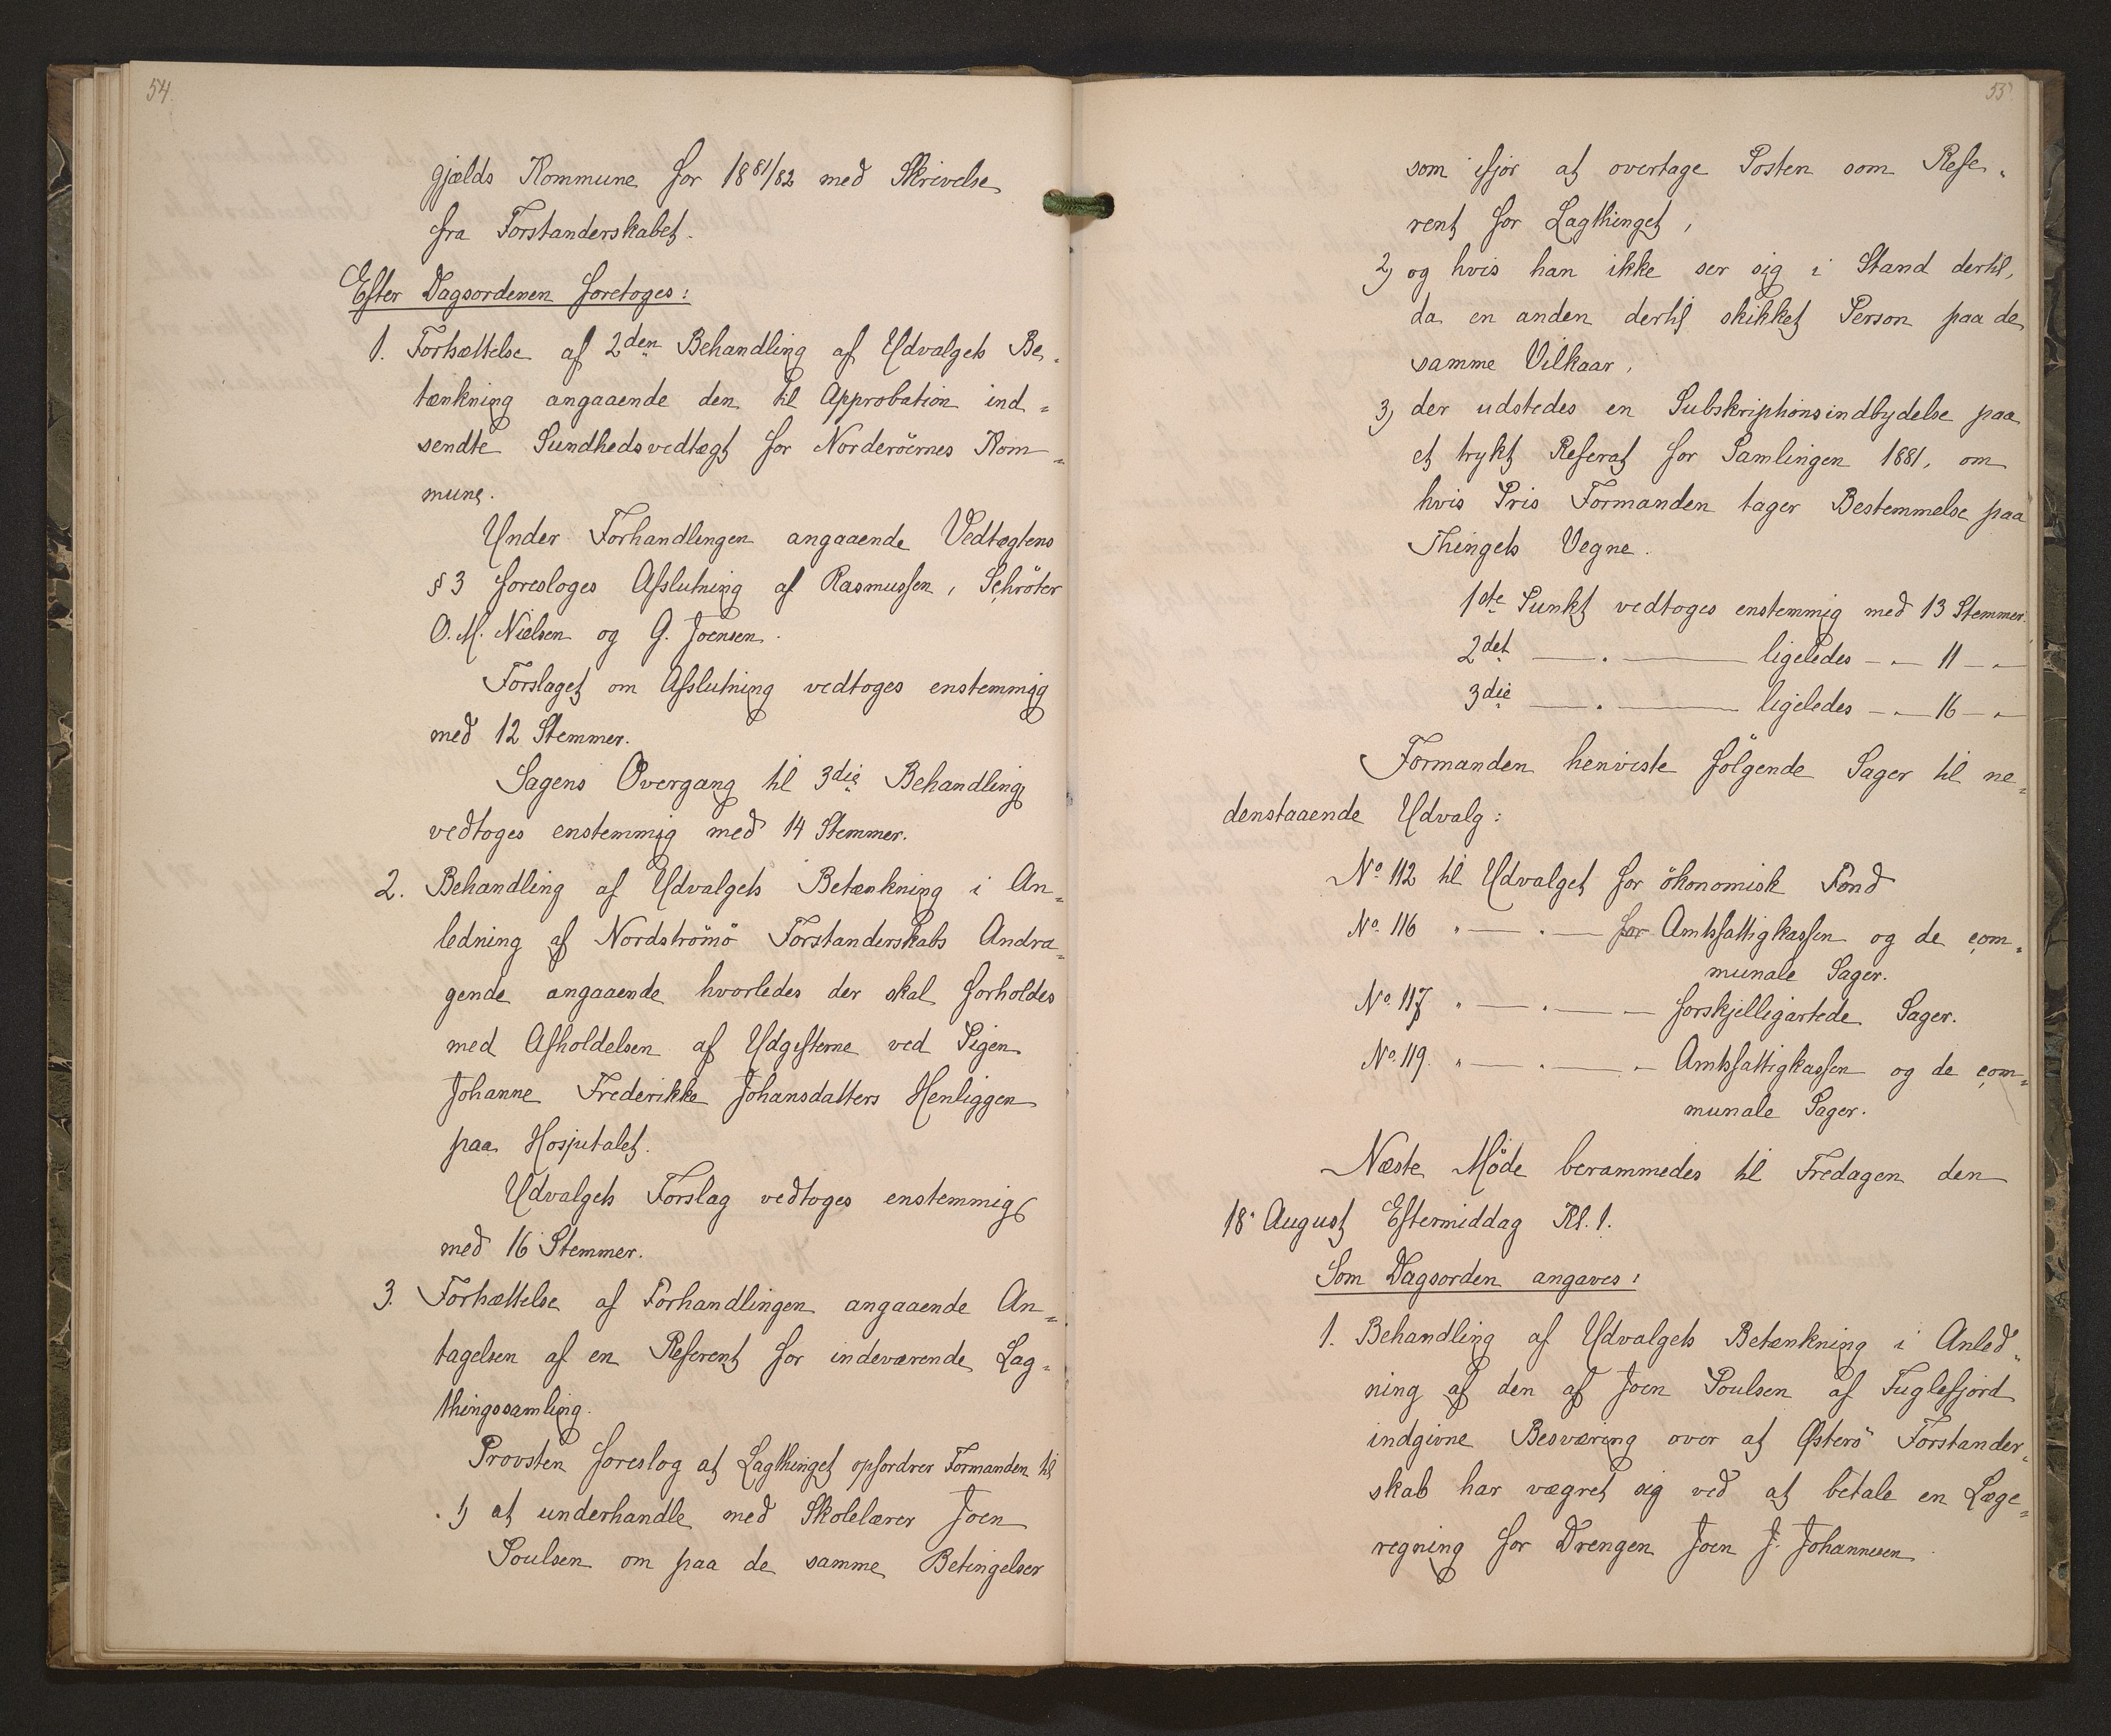 54.
gjælds Kommune for 18 81/82 med Skrivelse
fra Forstanderskabet.
Efter Dagsordenen foretoges:
1. Fortsættelse af 2den Behandling af Udvalgets Be-
tænkning angaaende den til Approbation ind-
sendte Sundhedsvedtægt for Norderöernes Kom-
mune.
Under Forhandlingen angaaende Vedtægtens
§ 3 foresloges Afslutning af Rasmussen, Schröter
O. M. Nielsen og G. Joensen.
Forslaget om Afslutning vedtoges enstemmig
med 12 Stemmer.
Sagens Overgang til 3die Behandling
vedtoges enstemmig med 14 Stemmer.
2. Behandling af Udvalgets Betænkning i An-
ledning af Nordströmö Forstanderskabs Andra-
gende angaaende hvorledes der skal forholdes
med Afholdelsen af Udgifterne ved Pigen
Johanne Frederikke Johansdatters Henliggen
paa Hospitalet.
Udvalgets Forslag vedtoges enstemmig
med 16 Stemmer.
3. Fortsættelse af Forhandlingen angaaende An-
tagelsen af en Referent for indeværende Lag-
thingssamling.
Provsten foreslog at Lagthinget opfordrer Formanden til
1) at underhandle med Skolelærer Joen
Poulsen om paa de samme Betingelser
55
som ifjor at overtage Posten som Refe-
rent for Lagthinget,
2) og hvis han ikke ser sig i Stand dertil,
da en anden dertil skikket Person paa de
samme Vilkaar,
3) der udstedes en Subskriptionsindbydelse paa
et trykt Referat for Samlingen 1881, om
hvis Pris Formanden tager Bestemmelse paa
Thingets Vegne.
1ste Punkt vedtoges enstemmig med 13 Stemmer.
2det — . — ligeledes - . - 11 - . -
3die — . — ligeledes - . - 16 - . -
Formanden henviste fölgende Sager til ne-
denstaaende Udvalg:
No. 112 til Udvalget for ökonomisk Fond
No. 116 " — . — for Amtsfattigkassen og de com-
munale Sager.
No. 117 " — . — - forskjelligartede Sager.
No. 119. " — . — - Amtsfattigkassen og de com-
munale Sager.
Næste Möde berammedes til Fredagen den
18. August Eftermiddag Kl. 1.
Som Dagsorden angaves:
1. Behandling af Udvalgets Betænkning i Anled-
ning af den af Joen Poulsen af Fuglefjord
indgivne Besværing over at Østerö Forstander-
skab har vægret sig ved at betale en Læge-
regning for Drengen Joen J. Johannesen